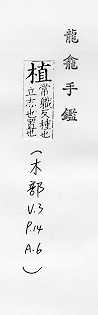 龍龕手鑑
植
常職反種也
立志也置也
(木部
V.3
P.14
A.6)